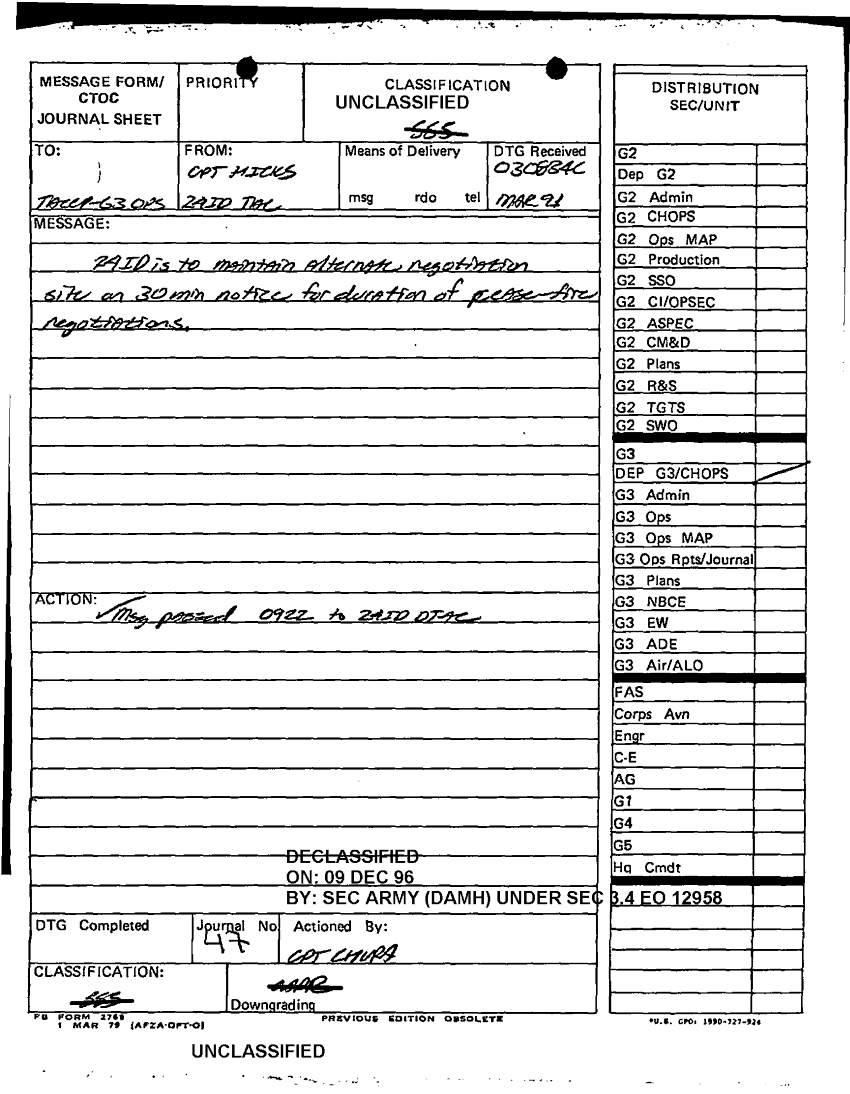 MESSAGE FORM/
CTOC
JOURNAL SHEET
PRIORITY
CLASSIFICATION
UNCLASSIFIED
TO:
FROM:
CPT HICKS
Means of Delivery
DTG Received
G3 OPS
TAC
msg rdo tel
MAR 91
MESSAGE:
is to maintain Alternate negotiation
site on 30 min notice for duration of cease-fire
negotiations.
ACTION:
Msg passed 0922 to
DECLASSIFIED
ON: 09 DEC 96
BY: SEC ARMY (DAMH) UNDER SEC 3.4 EO 12958
DTG Completed
Journal No.
47
Actioned By:
CPT
CLASSIFICATION:
Downgrading
FORM
1 MAR 79 (AFZA-DPT-O)
PREVIOUS EDITION OBSOLETE
UNCLASSIFIED
DISTRIBUTION
SEC/UNIT
G2
Dep G2
G2 Admin
G2 CHOPS
G2 Ops MAP
G2 Production
G2 SSO
G2 CI/OPSEC
G2 ASPEC
G2 CM&D
G2 Plans
G2 R&S
G2 TGTS
G2 SWO
G3
DEP G3/CHOPS
G3 Admin
G3 Ops
G3 Ops MAP
G3 Ops Rpts/Journal
G3 Plans
G3 NBCE
G3 EW
G3 ADE
G3 Air/ALO
FAS
Corps Avn
Engr
C-E
AG
G1
G4
G5
Hq Cmdt
*U.S. GPO: 1990-727-924